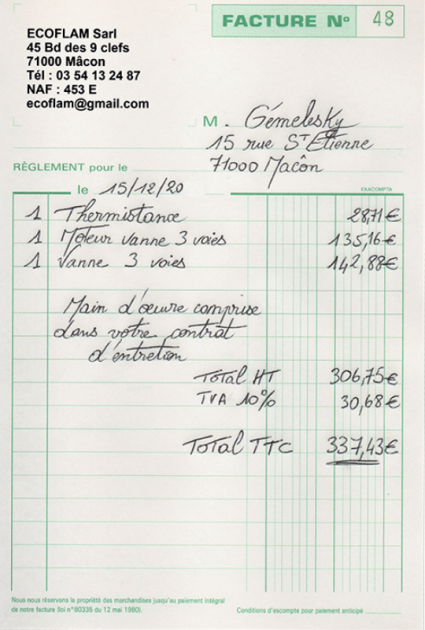 ECOFLAM Sarl
45 Bd des 9 clefs
71000 Mâcon
Tél : 03 54 13 24 87
NAF : 453 E
ecoflam@gmail.com
FACTURE N° 48
M. Gémelesky
15 rue St Etienne
71000 Macôn
RÈGLEMENT pour le
le 15/12/20
EXACOMPTA
1 Thermistance 28,71€
1 Moteur vanne 3 voies 135,16€
1 Vanne 3 voies 142,88€
Main d'oeuvre comprise
dans votre contrat
d'entretien
Total HT 306,75€
TVA 10% 30,68€
Total TTC 337,43€
Nous nous réservons la propriété des marchandises jusqu'au paiement intégral
de notre facture (loi n°80335 du 12 mai 1980).
Conditions d'escompte pour paiement anticipé